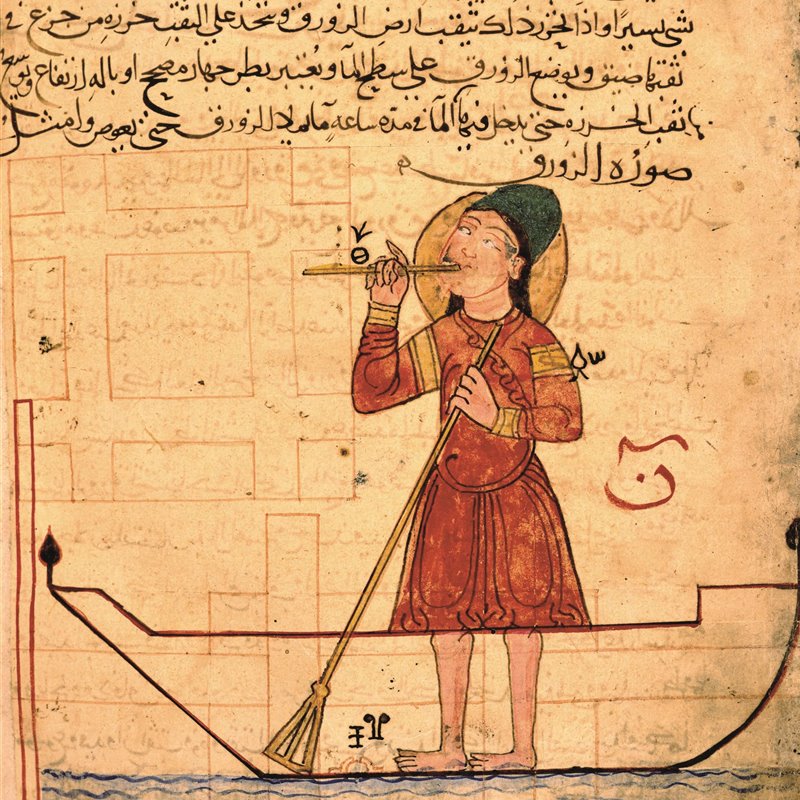 شي يسيرًا واذا ذلك تثقب ارض الزورق ويتخذ على الثقب خرزه من جزع في
ثقبها ضيق ويوضع الزورق على سطح الما ويعتبر بطرجهار مصحح او باله ارتفاع ويوسع
ثقب الخرزه حتى يدخل فيها الما في مده ساعه ما يملا الزورق حتى يغوص وامثل
صوره الزورق
ن